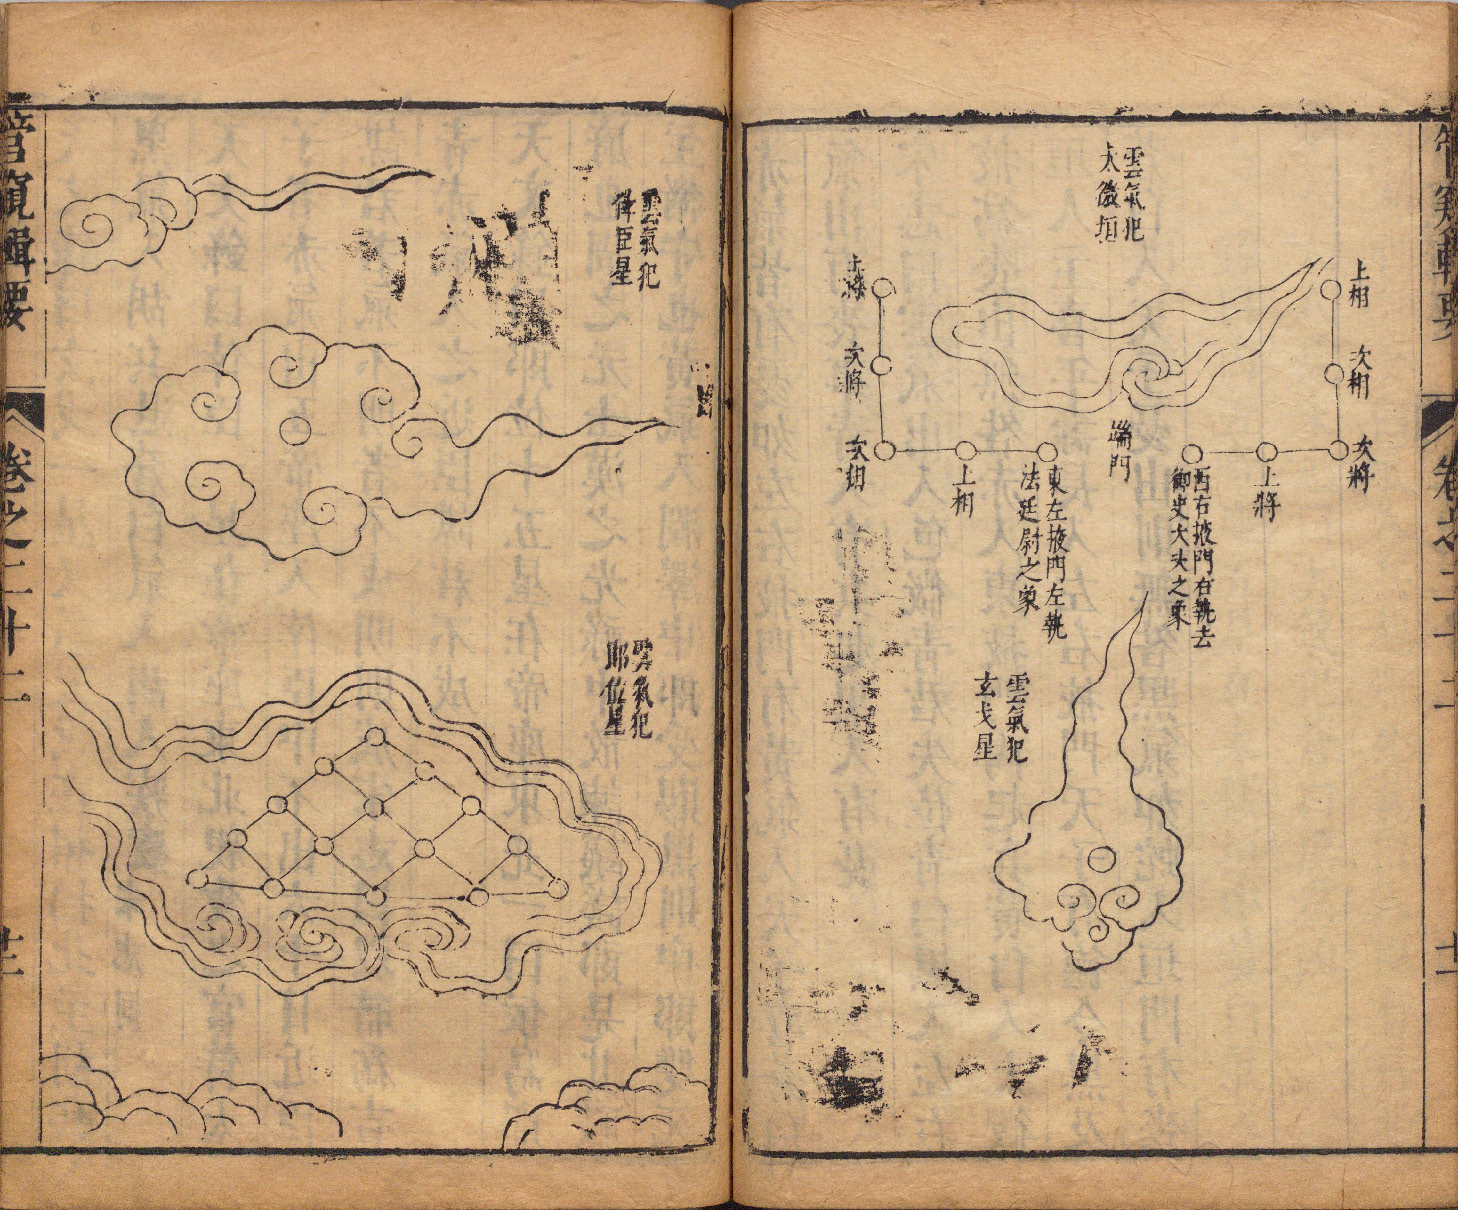 雲氣犯
太微垣
上相
次相
次將
上將
西右掖門右執去
御史大夫之象
端門
東左掖門左執
法廷尉之象
上相
次相
次將
上將
雲氣犯
玄戈星
管窺輯要
卷之二十二
雲氣犯
倖臣星
雲氣犯
郎位星